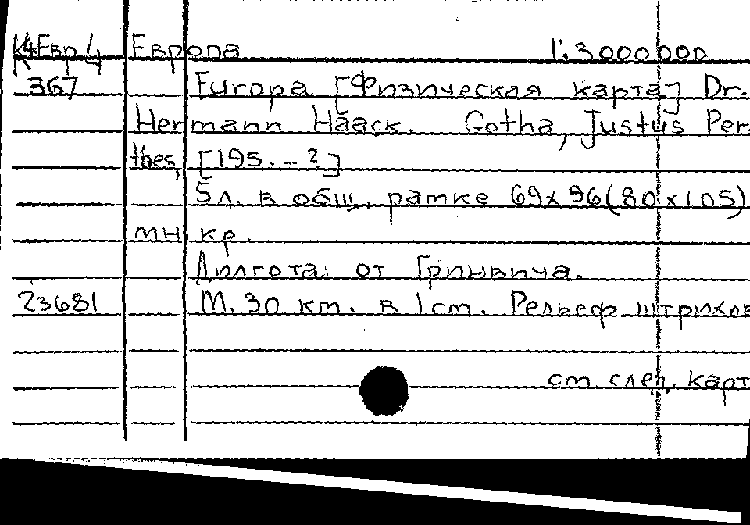 К4Евр/4 Европа 1:3000000
367 Europa [Физическая карта] Dr.
Hermann Haack. Gotha, Justus Per
thes, [195.-?]
5л. в общ. рамке 69х96(80х105)
мн кр.
Долгота: от Гринвича.
23681 М. 30 км. в 1см. Рельеф штрихов
см. след. карт